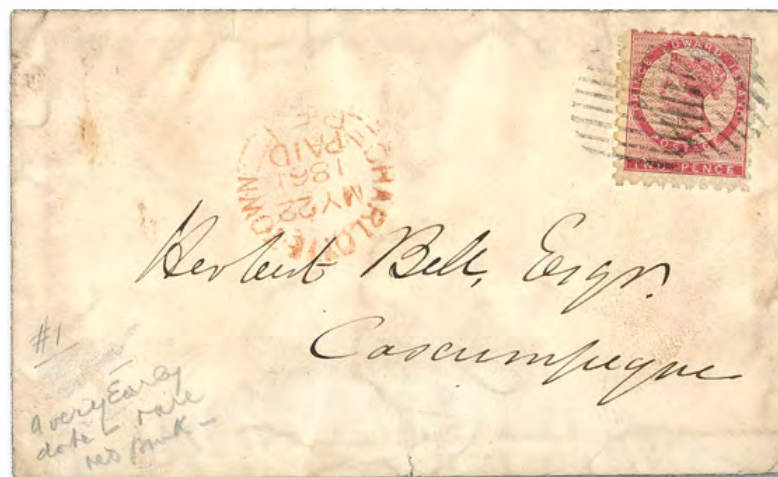 PRINCE EDWARD ISLAND
POSTAGE
TWO PENCE
CHARLOTTETOWN
MY 22
1861
PAID
Herbert Bell, Esqr.
Cascumpeque
#1
a very Early
date – rare
red